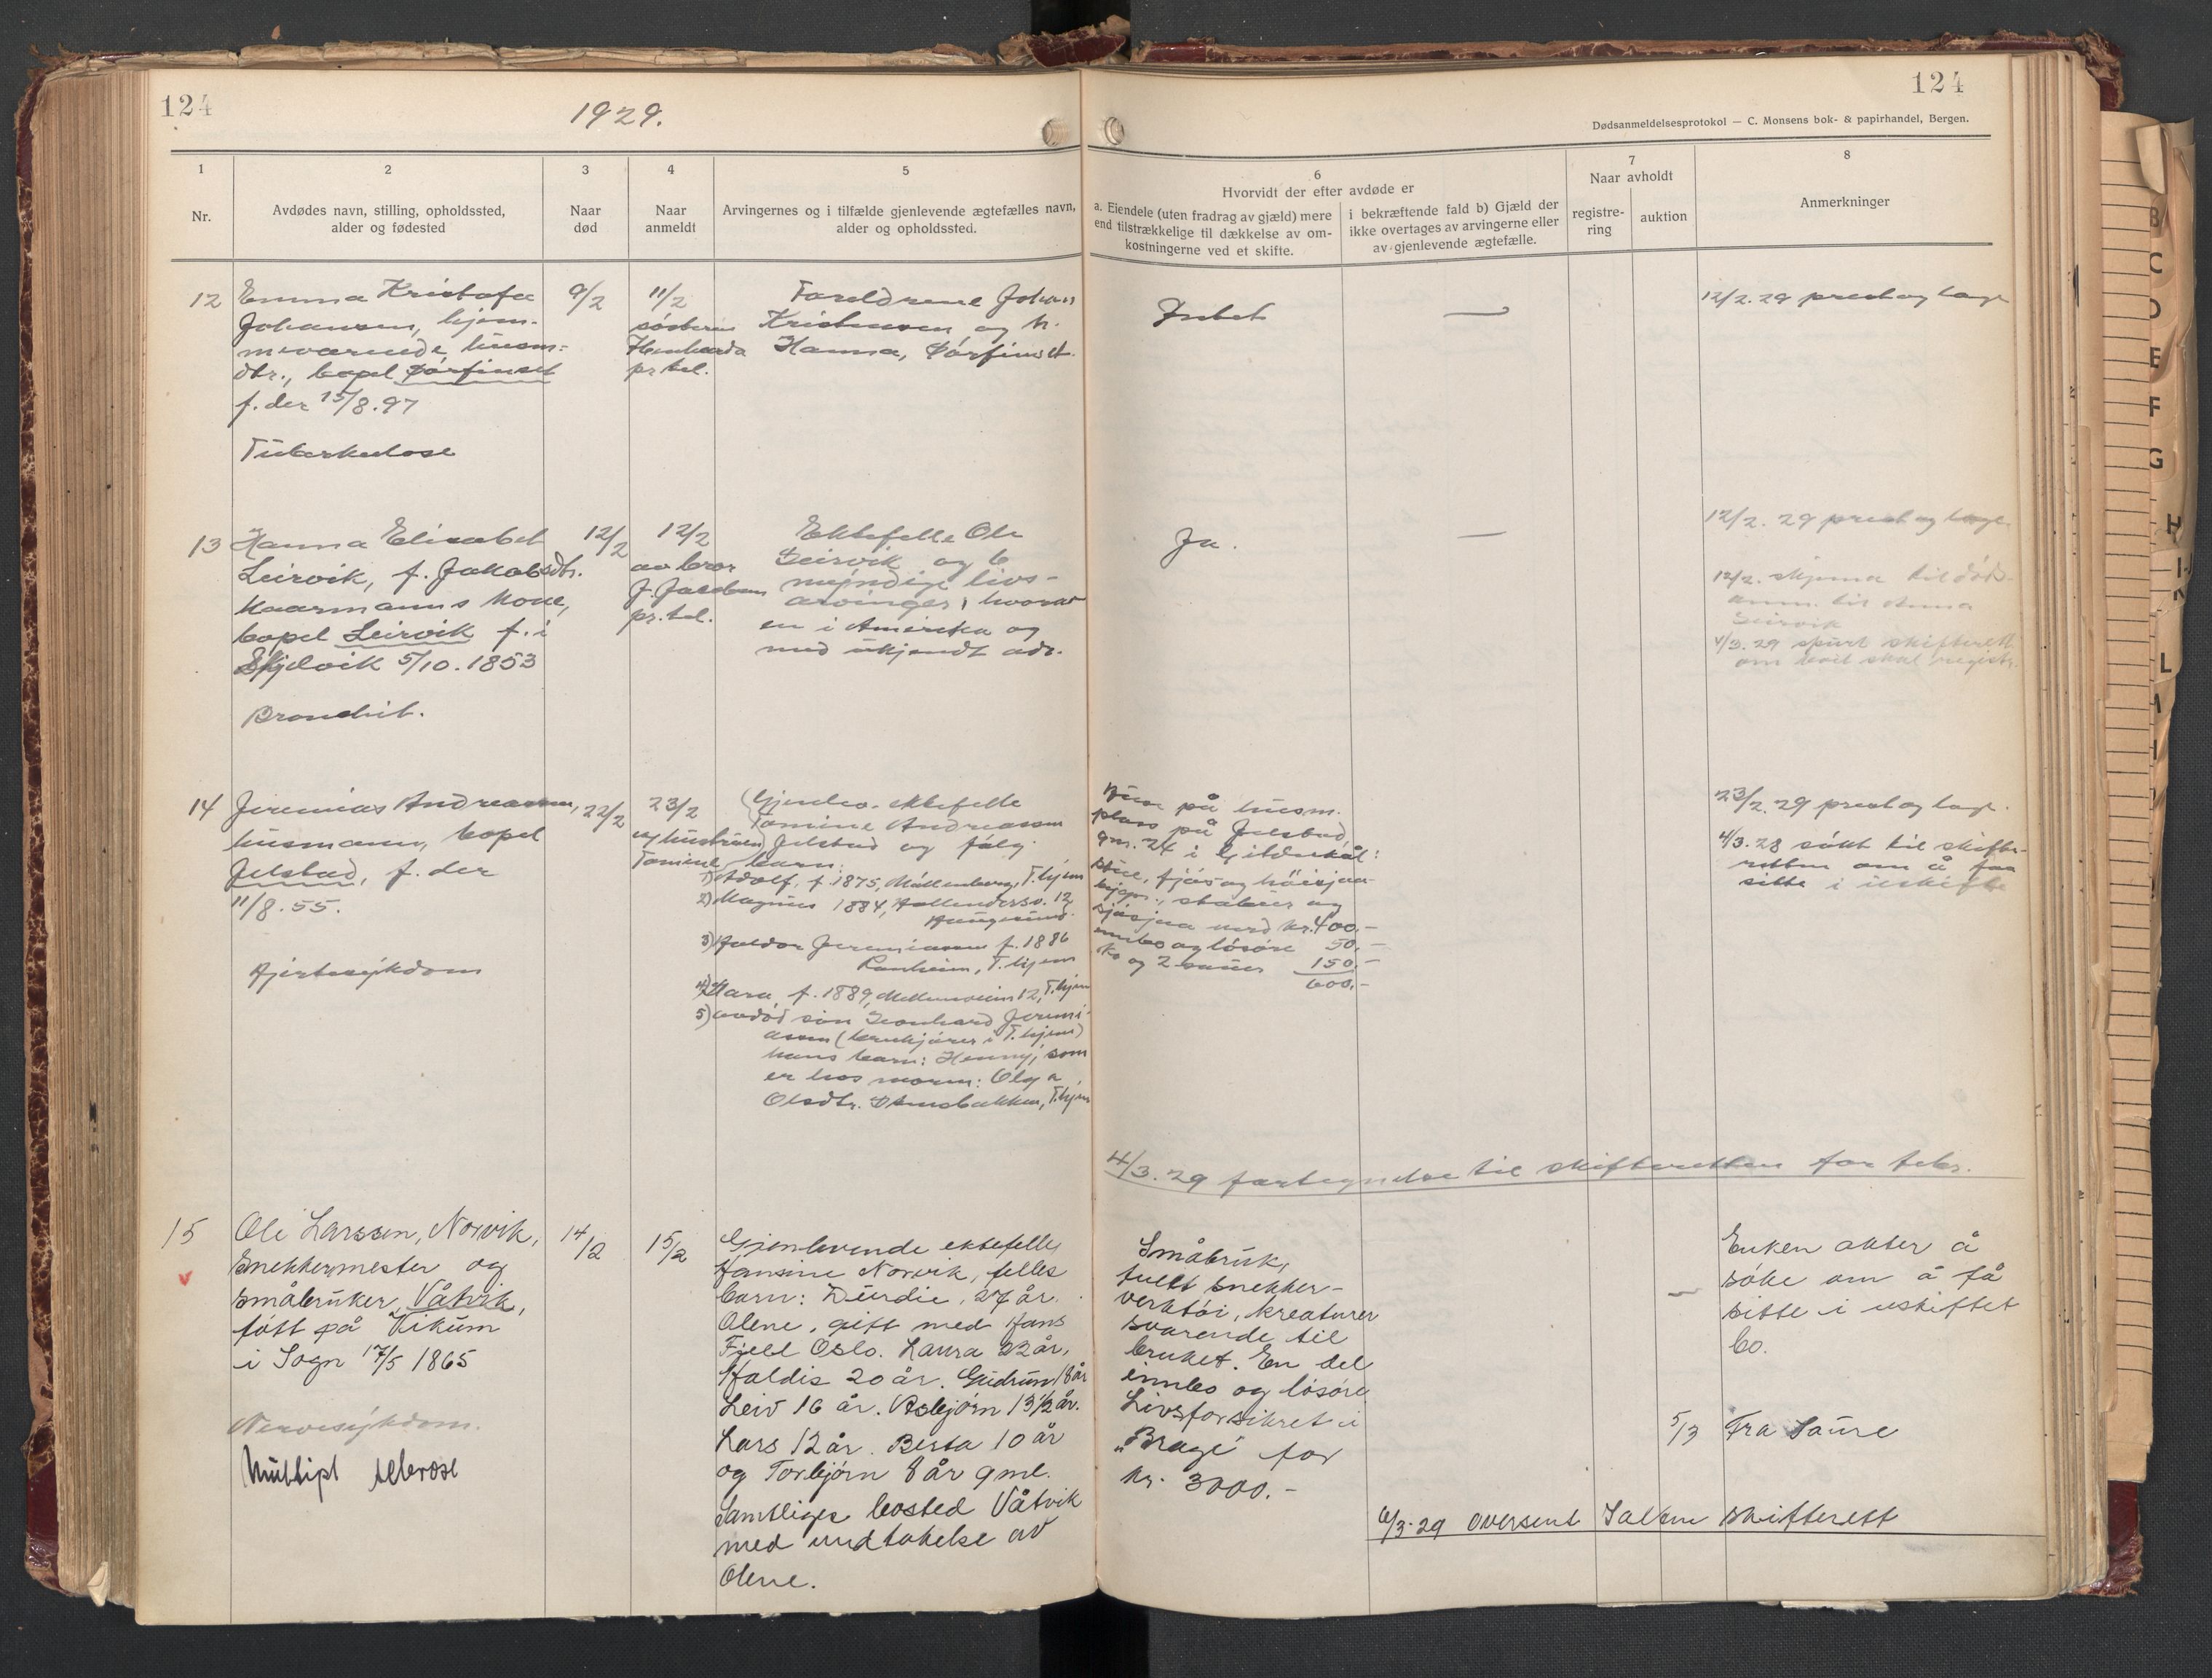 124
1929.
124
Dødsanmeldelsesprotokol — C. Monsens bok- & papirhandel, Bergen.
1
Nr.
2
Avdødes navn, stilling, opholdssted,
alder og fødested
3
Naar
død
4
Naar
anmeldt
5
Arvingernes og i tilfælde gjenlevende ægtefælles navn,
alder og opholdssted.
6
Hvorvidt der efter avdøde er
a. Eiendele (uten fradrag av gjæld) mere
end tilstrækkelige til dækkelse av om-
kostningerne ved et skifte.
i bekræftende fald b) Gjæld der
ikke overtages av arvingerne eller
av gjenlevende ægtefælle.
7
Naar avholdt
registre-
ring
auktion
8
Anmerkninger
12
Emma Kristofa
Johansen, hjem-
meværende husm-
dtr., bopel Dørfinset
f. der 15/8.97
Tuberkulose
9/2
11/2
søsteren
pr tel.
Foreldrene Johan
Kristensen og h.
Hanna, Dørfinset.
Intet
—
12/2.29 prest og lage
13
Hanna Elisabet
Leirvik, f. Jakobsdtr.
kaarmanns kone,
bopel Leirvik f. i
Skjelvik 5/10.1853
Bronchit.
12/2
12/2
av bror
J. Jacobsen
pr. tel.
Ektefelle Ole
Leirvik og 6
myndige livs-
arvinger, hvorav
en i Amerika og
med ukjendt adr.
Ja.
—
12/2.29 prest og lage
12/2. skjema til døds-
anm. til Anna
Leirvik
4/3.29 spurt skifterett
om boet skal registr.
14
Jeremias Andreassen,
husmann, bopel
Jelstad, f. der
11/8.55.
Hjertesykdom
22/2
23/2
av hustruen
Tomine
Gjenlev. ektefelle
Tomine Andreassen
Jelstad og følg.
barn:
1) Adolf, f. 1875, Møllenberg, T.hjem
2) Magnus 1884, 12,
Haugesund.
3) Haldor Jeremiassen f. 1886
Ranheim, T.hjem
4) Klara, f. 1889, 12, T.hjem
5) avdød søn Leonhard Jeremi-
assen (T.hjem)
hans barn: Henny, som
er hos moren: Olga
Olsdtr. Stensbakken, T.hjem
Huse på husm.
plass på Jelstad,
gm. 24 i Gildeskål:
stue, fjøs og
stabur og
sjøsjaa verd kr. 400.-
innbo og løsøre 50.-
ko og 2 sauer 150.-
600.-
23/2.29 prest og lage.
4/3.28 søkt til skifte-
retten om å faa
sitte i uskifte
4/3.29 fortegnelse til skifteretten for febr.
15
v
Ole Larssen, Norvik,
Snekkermester og
småbruker, Våtvik,
født på Vikum
i Sogn 17/5 1865
Nervesykdom.
Multipl sklerose
14/2
15/2
Gjenlevende ektefelle
Hansine Norvik, felles
barn: Durdie, 27 år.
Olene, gift med Hans
Fjell Oslo. Laura 22 år,
Haldis 20 år. Gudrun 18 år
Leiv 16 år. Asbjørn 13½ år.
Lars 12 år. Berta 10 år
og Torbjørn 8 år gml.
Samtliges bosted Våtvik
med undtakelse av
Olene.
Småbruk,
fullt snekker-
verktøi, kreaturer
svarende til
bruket. En del
innbo og løsøre
Livsforsikret i
„Brage" for
kr. 3000.-
—
Enken akter å
søke om å få
sitte i uskiftet
bo.
5/3 Fra Saure
6/3.29 oversent Salten skifterett
B
C
D
E
F
G
H
K
L
M